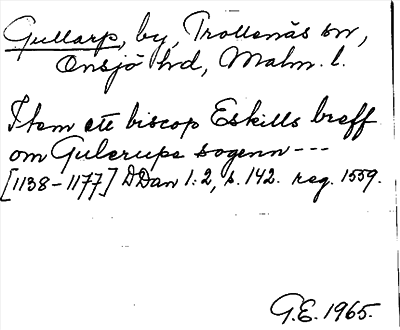 Gullarp, by, Trollenäs sn,
Onsjö hd, Malm. l.
Item ett biscop Eskills breff
om Gulerups sogenn ---
[1138-1177] DDan 1:2, s. 142. reg. 1559.
G.E. 1965.